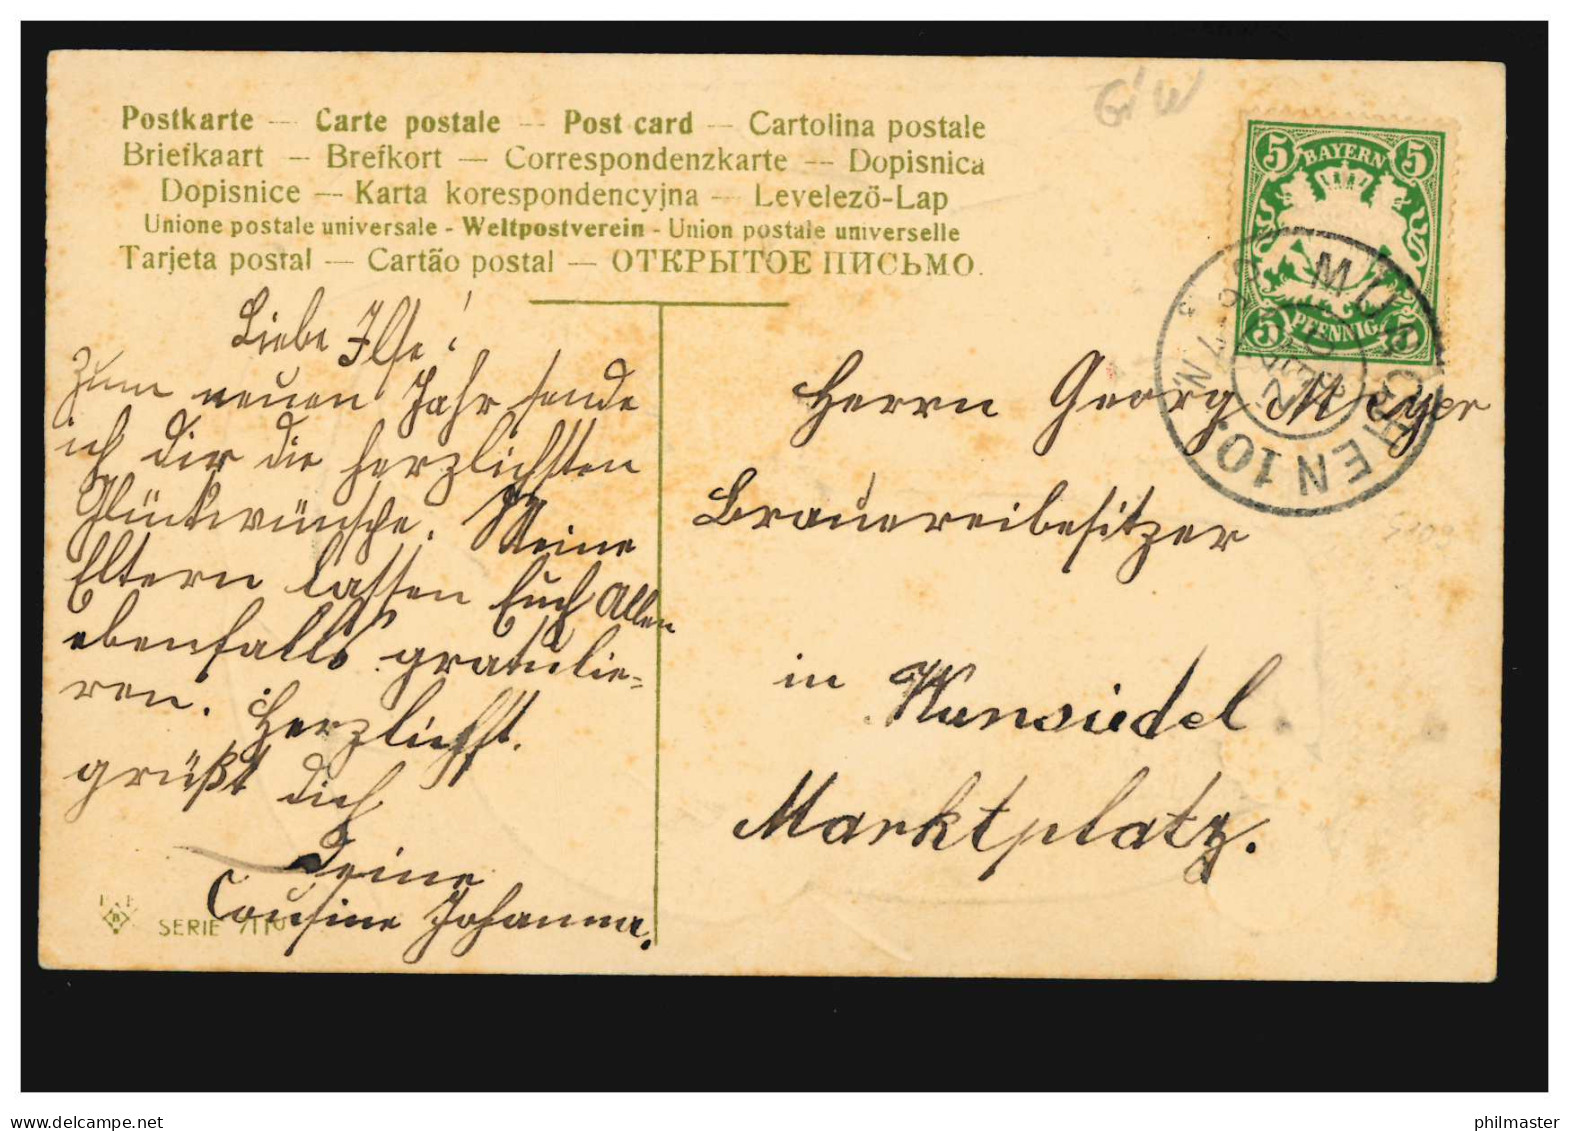 Postkarte — Carte postale — Post card — Cartolina postale
Briefkaart — Brefkort — Correspondenzkarte — Dopisnica
Dopisnice — Karta korespondencyjna — Levelező-Lap
Unione postale universale - Weltpostverein - Union postale universelle
Tarjeta postal — Cartão postal — ОТКРЫТОЕ ПИСЬМО.
BAYERN
5 5
5 PFENNIG 5
MÜNCHEN 10.
6-7 N.
Liebe Ilse!
Zum neuen Jahr sende
ich dir die herzlichsten
Glückwünsche. Meine
Eltern lassen Euch Allen
ebenfalls gratulie-
ren. Herzlichst.
grüßt dich
Deine
Cousine Johanna.
Herrn Georg Meyer
Brauereibesitzer
in Wunsiedel
Marktplatz.
SERIE 7110
philmaster
www.delcampe.net